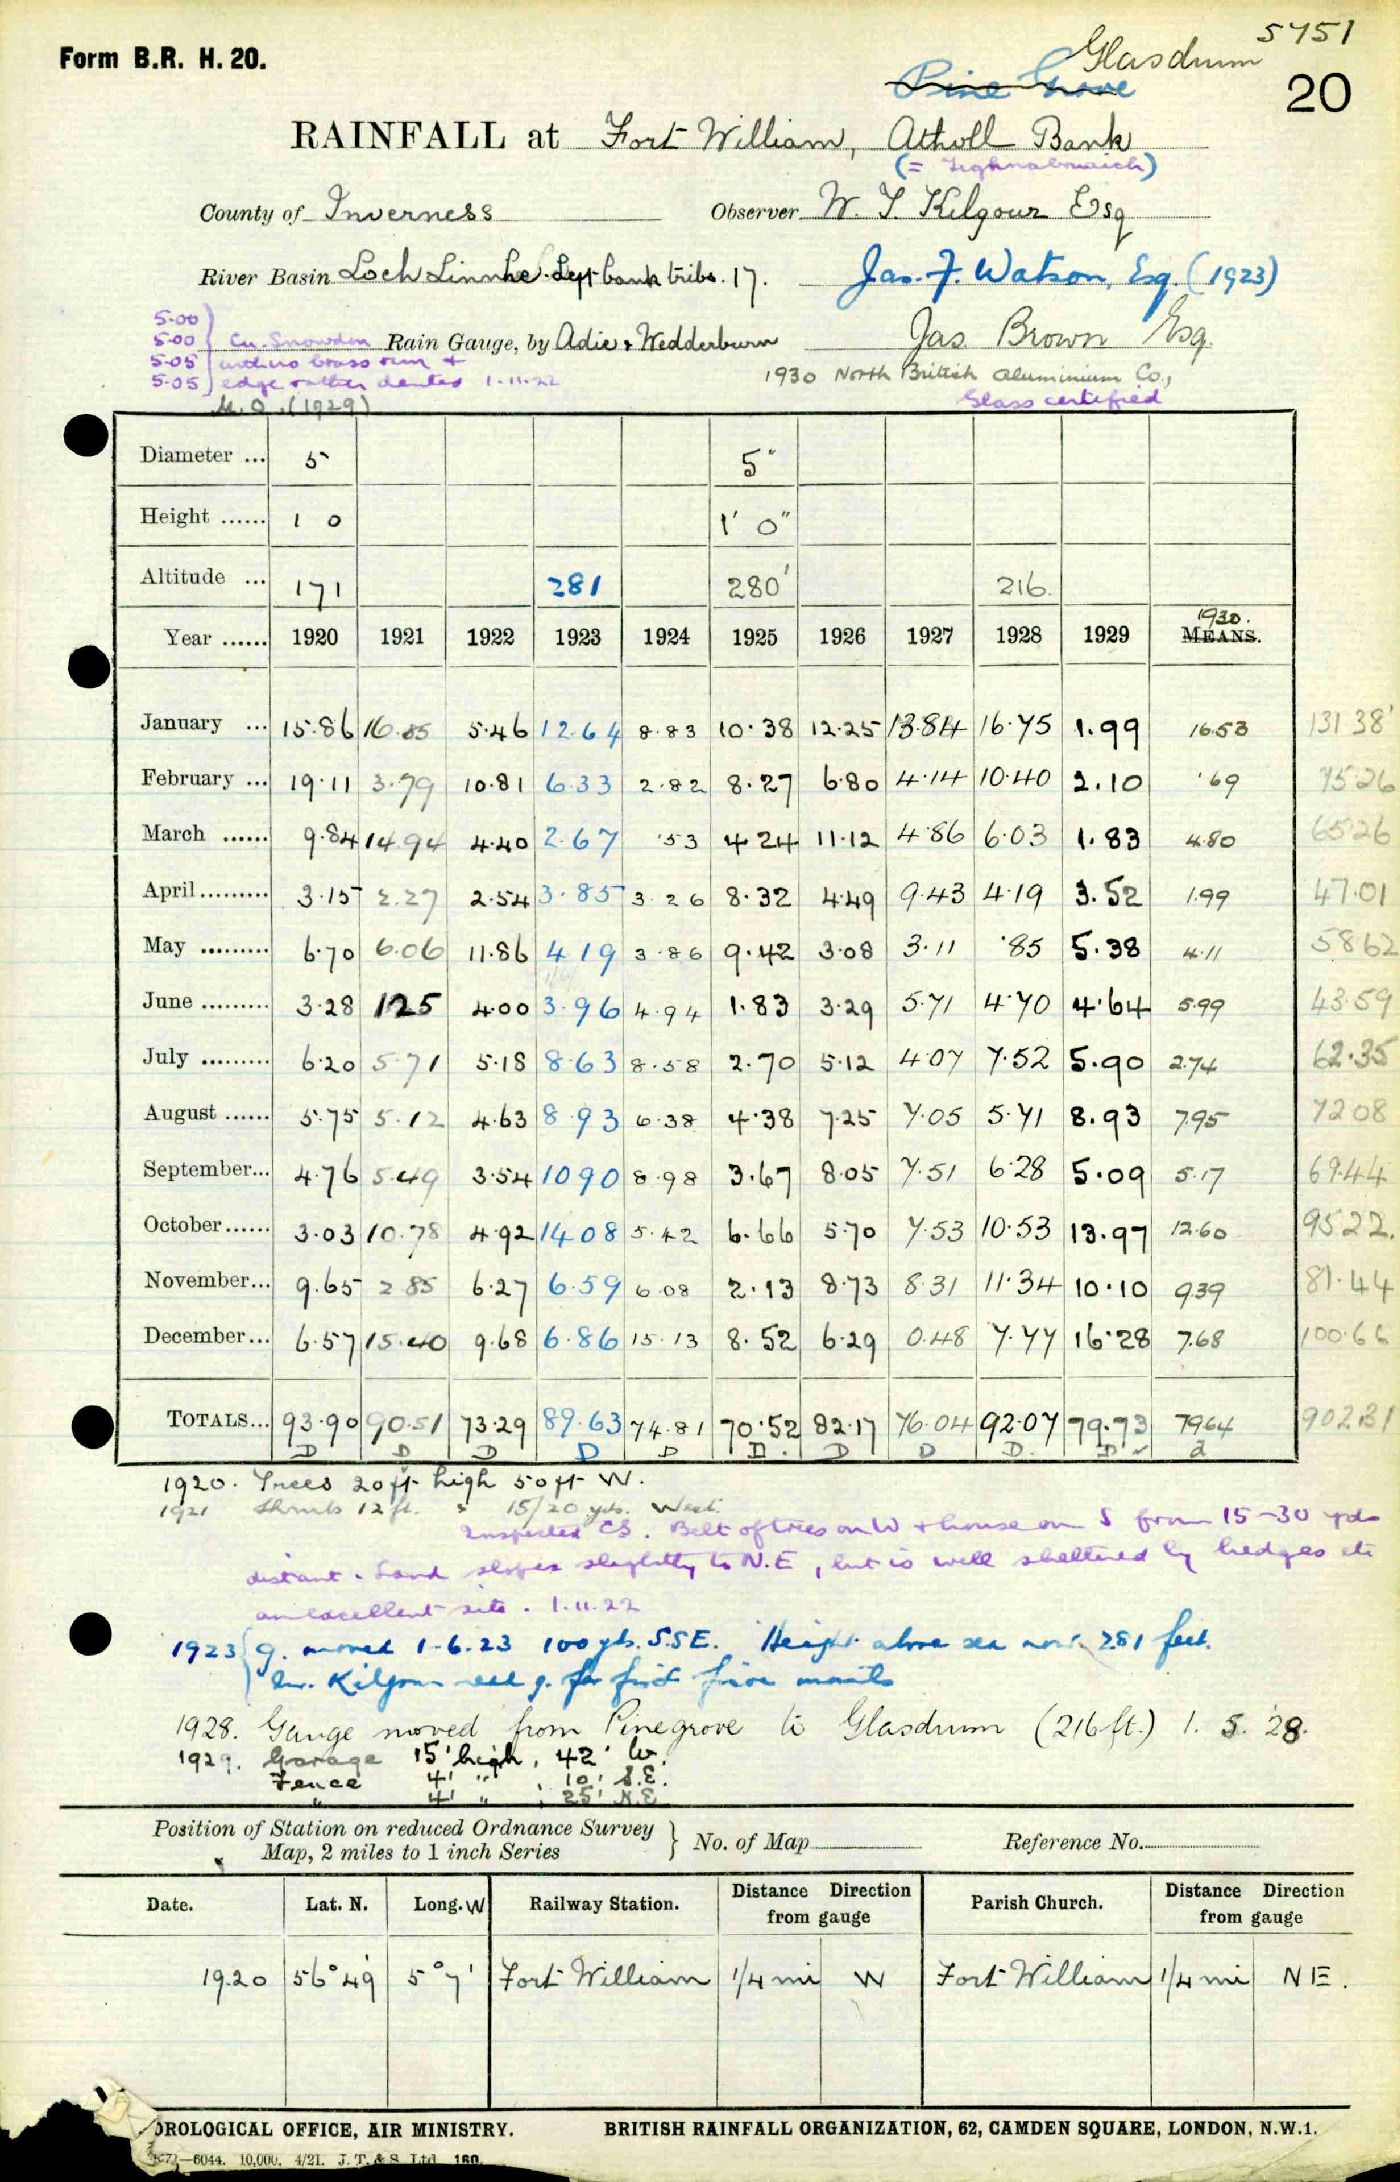 5751
Form B.R. H. 20.
Glasdrum
Pine Grove
20
RAINFALL at Fort William, Atholl Bank
County of Inverness Observer W. T. Kilgour Esq
River Basin Loch Linnhe Left bank tribs. 17. Jas. F. Watson, Esq. (1923)
5.00
5.00 Cu. Snowdon Rain Gauge, by Adie & Wedderburn Jas Brown Esq.
5.05 with no brass rim +
5.05 edge rather dented 1.11.22 1930 North British Aluminium Co.,
M.O. (1929) Glass certified
Diameter ... 5 5"
Height ...... 1 0 1' 0"
Altitude ... 171 281 280' 216.
Year ...... 1920 1921 1922 1923 1924 1925 1926 1927 1928 1929 1930. MEANS.
January ... 15.86 16.85 5.46 12.64 8.83 10.38 12.25 13.84 16.75 1.99 16.53 131.38
February ... 19.11 3.79 10.81 6.33 2.82 8.27 6.80 4.14 10.40 2.10 .69 75.26
March ...... 9.84 14.94 4.40 2.67 .53 4.24 11.12 4.86 6.03 1.83 4.80 65.26
April ......... 3.15 2.27 2.54 3.85 3.26 8.32 4.49 9.43 4.19 3.52 1.99 47.01
May ......... 6.70 6.06 11.86 4.19 3.86 9.42 3.08 3.11 .85 5.38 4.11 58.62
June ......... 3.28 1.25 4.00 3.96 4.94 1.83 3.29 5.71 4.70 4.64 5.99 43.59
July ......... 6.20 5.71 5.18 8.63 8.58 2.70 5.12 4.07 7.52 5.90 2.74 62.35
August ...... 5.75 5.12 4.63 8.93 6.38 4.38 7.25 7.05 5.71 8.93 7.95 72.08
September... 4.76 5.49 3.54 10.90 8.98 3.67 8.05 7.51 6.28 5.09 5.17 69.44
October...... 3.03 10.78 4.92 14.08 5.42 6.66 5.70 7.53 10.53 13.97 12.60 95.22.
November... 9.65 2.85 6.27 6.59 6.08 2.13 8.73 8.31 11.34 10.10 9.39 81.44
December... 6.57 15.40 9.68 6.86 15.13 8.52 6.29 0.48 7.77 16.28 7.68 100.66
TOTALS... 93.90 90.51 73.29 89.63 74.81 70.52 82.17 76.04 92.07 79.73 79.64 902.31
D D D D D D. D D D. D d
1920. Trees 20 ft high 50 ft W.
1921 Shrubs 12 ft. " 15/20 yds. West.
Inspected CS. Belt of trees on W + house on S from 15-30 yds
distant. Land slopes slightly to N.E, but is well sheltered by hedges etc
an excellent site. 1.11.22
1923 g. moved 1-6.23 100 yds. S.SE. Height above sea now 281 feet.
Mr. Kilgour read g. for first five months
1928. Gauge moved from Pinegrove to Glasdrum (216 ft.) 1. 5. 28.
1929. Garage 15' high, 42' W.
Fence 4' " , 10' S.E.
" 4' " , 25' N.E
Position of Station on reduced Ordnance Survey
Map, 2 miles to 1 inch Series } No. of Map Reference No.
Date. Lat. N. Long. W Railway Station. Distance Direction from gauge Parish Church. Distance Direction from gauge
1920 56° 49' 5° 7' Fort William 1/4 mi W Fort William 1/4 mi NE.
OROLOGICAL OFFICE, AIR MINISTRY. BRITISH RAINFALL ORGANIZATION, 62, CAMDEN SQUARE, LONDON, N.W.1.
—6044. 10,000. 4/21. J. T. & S. Ltd. 160.